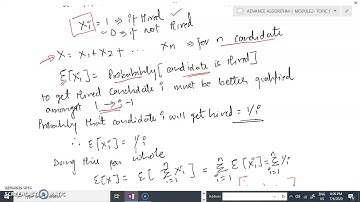 Xi = 1 → if Hired
- 0 → if not Hired
X = x1 + x2 + ... xn → for n candidate
E[Xi] = Probability [candidate is Hired]
to get Hired Candidate i must be better qualified
amongst 1 → i-1
Probability that candidate i will get hired = 1/i
∴ E[Xi] = 1/i
Doing this for whole
E[X] = E[ n Σ i=1 Xi ] = n Σ i=1 E[Xi] = n Σ i=1 1/i
ADVANCE ALGORITHM - MODULE2- TOPIC 1
ENG